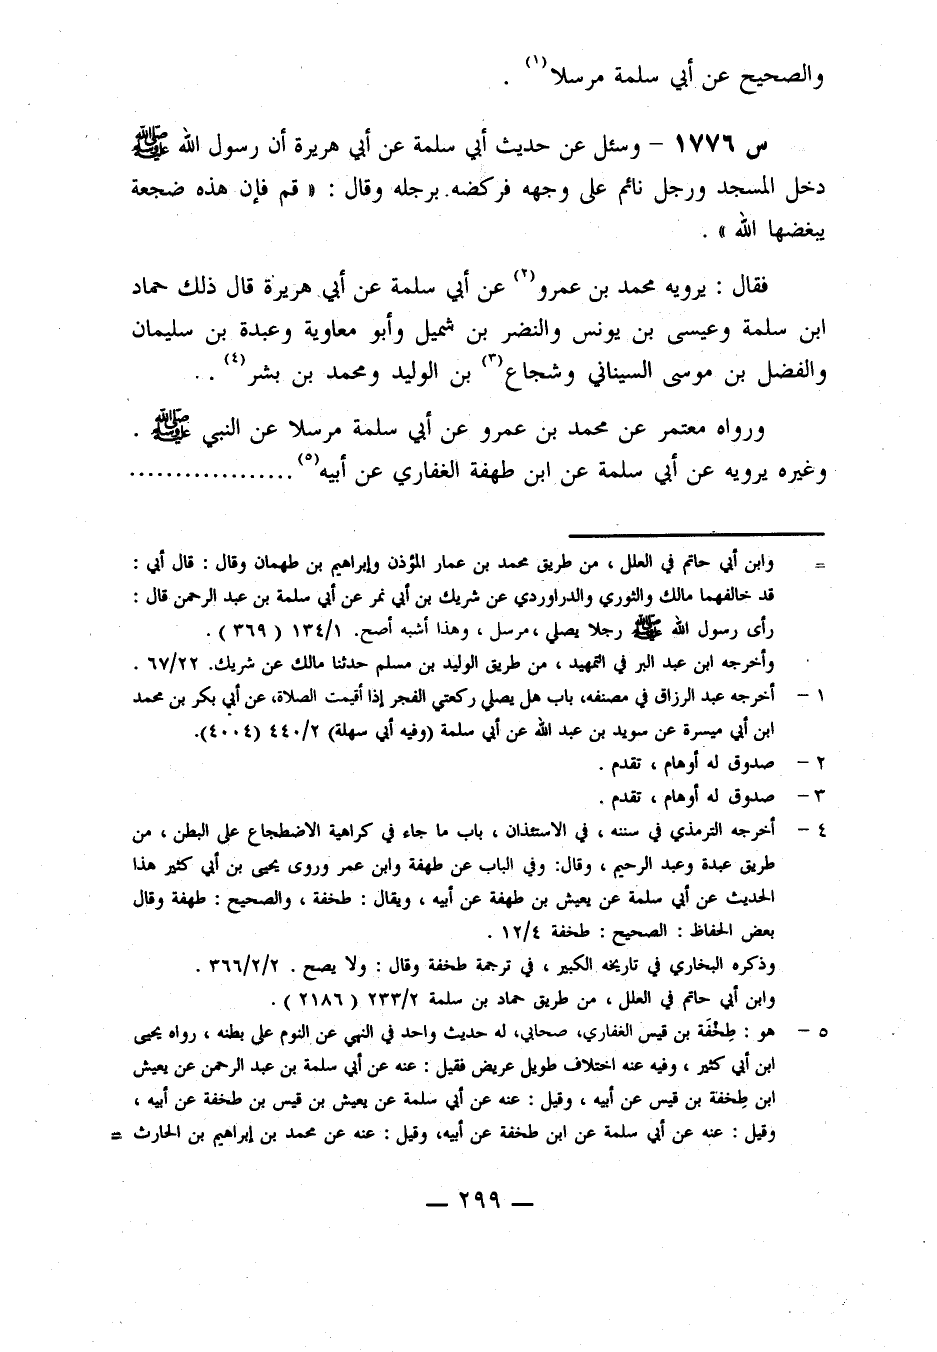 والصحيح عن أبي سلمة مرسلا(١) .
س ١٧٧٦ – وسئل عن حديث أبي سلمة عن أبي هريرة أن رسول الله ﷺ
دخل المسجد ورجل نائم على وجهه فركضه برجله وقال : « قم فإن هذه ضجعة
يبغضها الله » .
فقال : يرويه محمد بن عمرو(٢) عن أبي سلمة عن أبي هريرة قال ذلك حماد
ابن سلمة وعيسى بن يونس والنضر بن شميل وأبو معاوية وعبدة بن سليمان
والفضل بن موسى السيناني وشجاع(٣) بن الوليد ومحمد بن بشر(٤) . .
ورواه معتمر عن محمد بن عمرو عن أبي سلمة مرسلا عن النبي ﷺ .
وغيره يرويه عن أبي سلمة عن ابن طهفة الغفاري عن أبيه(٥) ..................
= وابن أبي حاتم في العلل ، من طريق محمد بن عمار المؤذن وإبراهيم بن طهمان وقال : قال أبي :
قد خالفهما مالك والثوري والدراوردي عن شريك بن أبي نمر عن أبي سلمة بن عبد الرحمن قال :
رأى رسول الله ﷺ رجلا يصلي ، مرسل ، وهذا أشبه أصح. ١٣٤/١ ( ٣٦٩ ) .
وأخرجه ابن عبد البر في التمهيد ، من طريق الوليد بن مسلم حدثنا مالك عن شريك. ٦٧/٢٢ .
١ – أخرجه عبد الرزاق في مصنفه، باب هل يصلي ركعتي الفجر إذا أقيمت الصلاة، عن أبي بكر بن محمد
ابن أبي ميسرة عن سويد بن عبد الله عن أبي سلمة (وفيه أبي سهلة) ٤٤٠/٢ (٤٠٠٤).
٢ – صدوق له أوهام ، تقدم .
٣ – صدوق له أوهام ، تقدم .
٤ – أخرجه الترمذي في سننه ، في الاستئذان ، باب ما جاء في كراهية الاضطجاع على البطن ، من
طريق عبدة وعبد الرحيم ، وقال: وفي الباب عن طهفة وابن عمر وروى يحيى بن أبي كثير هذا
الحديث عن أبي سلمة عن يعيش بن طهفة عن أبيه ، ويقال : طخفة ، والصحيح : طهفة وقال
بعض الحفاظ : الصحيح : طخفة ١٢/٤ .
وذكره البخاري في تاريخه الكبير ، في ترجمة طخفة وقال : ولا يصح . ٣٦٦/٢/٢ .
وابن أبي حاتم في العلل ، من طريق حماد بن سلمة ٢٣٣/٢ ( ٢١٨٦ ) .
٥ – هو : طِخْفَة بن قيس الغفاري، صحابي، له حديث واحد في النهي عن النوم على بطنه ، رواه يحيى
ابن أبي كثير ، وفيه عنه اختلاف طويل عريض فقيل : عنه عن أبي سلمة بن عبد الرحمن عن يعيش
ابن طِخفة بن قيس عن أبيه ، وقيل : عنه عن أبي سلمة عن يعيش بن قيس بن طخفة عن أبيه ،
وقيل : عنه عن أبي سلمة عن ابن طخفة عن أبيه، وقيل : عنه عن محمد بن إبراهيم بن الحارث =
— ٢٩٩ —